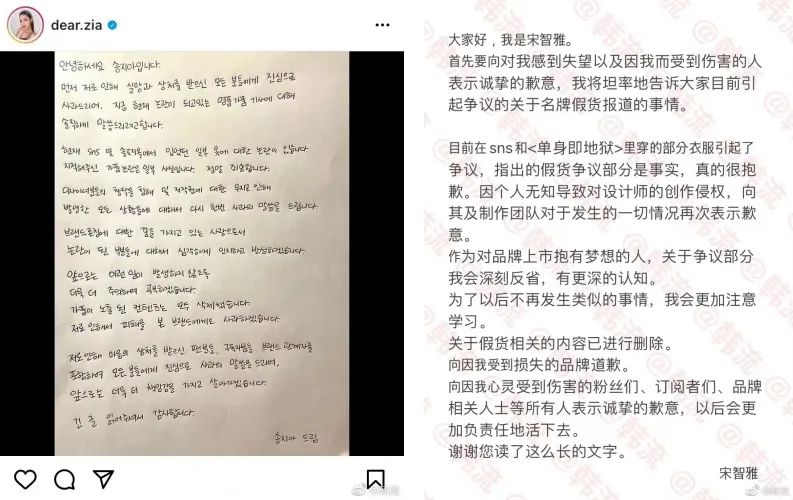 dear.zia
안녕하세요 송지아입니다.
먼저 저로 인해 실망과 상처를 받으신 모든 분들에게 진심으로
사과드리며, 지금 현재 논란이 되고있는 명품가품 기사에 대해
솔직하게 말씀드리려고합니다.
현재 SNS 및 솔로지옥에서 입었던 일부 옷에 대한 논란이 있습니다.
지적해주신 가품논란은 일부 사실입니다. 정말 죄송합니다.
디자이너분들의 창작물 침해 및 저작권에 대한 무지로 인해
발생한 모든 상황들에 대해서 다시 한번 사과의 말씀을 드립니다.
브랜드론칭에 대한 꿈을 가지고 있는 사람으로서
논란이 된 부분들에 대해서 심각하게 인지하고 반성하겠습니다.
앞으로는 이런 일이 발생하지 않도록
더욱 더 주의하며 공부하겠습니다.
가품이 노출 된 컨텐츠는 모두 삭제했습니다.
저로 인해서 피해를 본 브랜드에게도 사과하겠습니다.
저로인해 마음의 상처를 받으신 팬분들, 구독자분들 브랜드 관계자를
포함하여 모든 분들에게 진심으로 사과의 말씀을 드리며,
앞으로는 더욱 더 책임감을 가지고 살아가겠습니다.
긴 글 읽어주셔서 감사합니다.
송지아 드림
大家好，我是宋智雅。
首先要向对我感到失望以及因我而受到伤害的人
表示诚挚的歉意，我将坦率地告诉大家目前引
起争议的关于名牌假货报道的事情。
目前在sns和<单身即地狱>里穿的部分衣服引起了
争议，指出的假货争议部分是事实，真的很抱
歉。因个人无知导致对设计师的创作侵权，向
其及制作团队对于发生的一切情况再次表示歉
意。
作为对品牌上市抱有梦想的人，关于争议部分
我会深刻反省，有更深的认知。
为了以后不再发生类似的事情，我会更加注意
学习。
关于假货相关的内容已进行删除。
向因我受到损失的品牌道歉。
向因我心灵受到伤害的粉丝们、订阅者们、品牌
相关人士等所有人表示诚挚的歉意，以后会更
加负责任地活下去。
谢谢您读了这么长的文字。
宋智雅
@韩流